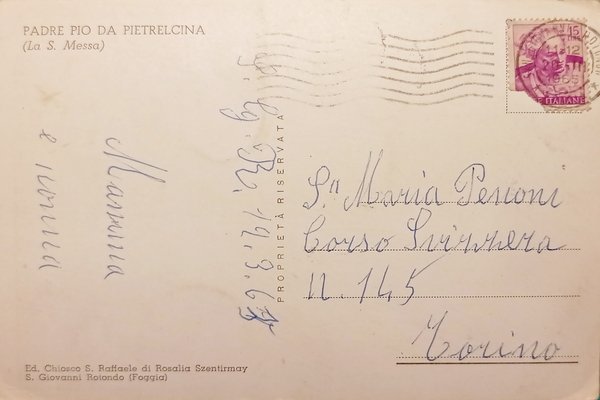 PADRE PIO DA PIETRELCINA
(La S. Messa)
Mamma
e nonna
19.3.65
PROPRIETÀ RISERVATA
15
11-12
1965
ITALIANE
S.ra Maria Penoni
Corso Svizzera
n. 145
Torino
Ed. Chiosco S. Raffaele di Rosalia Szentirmay
S. Giovanni Rotondo (Foggia)